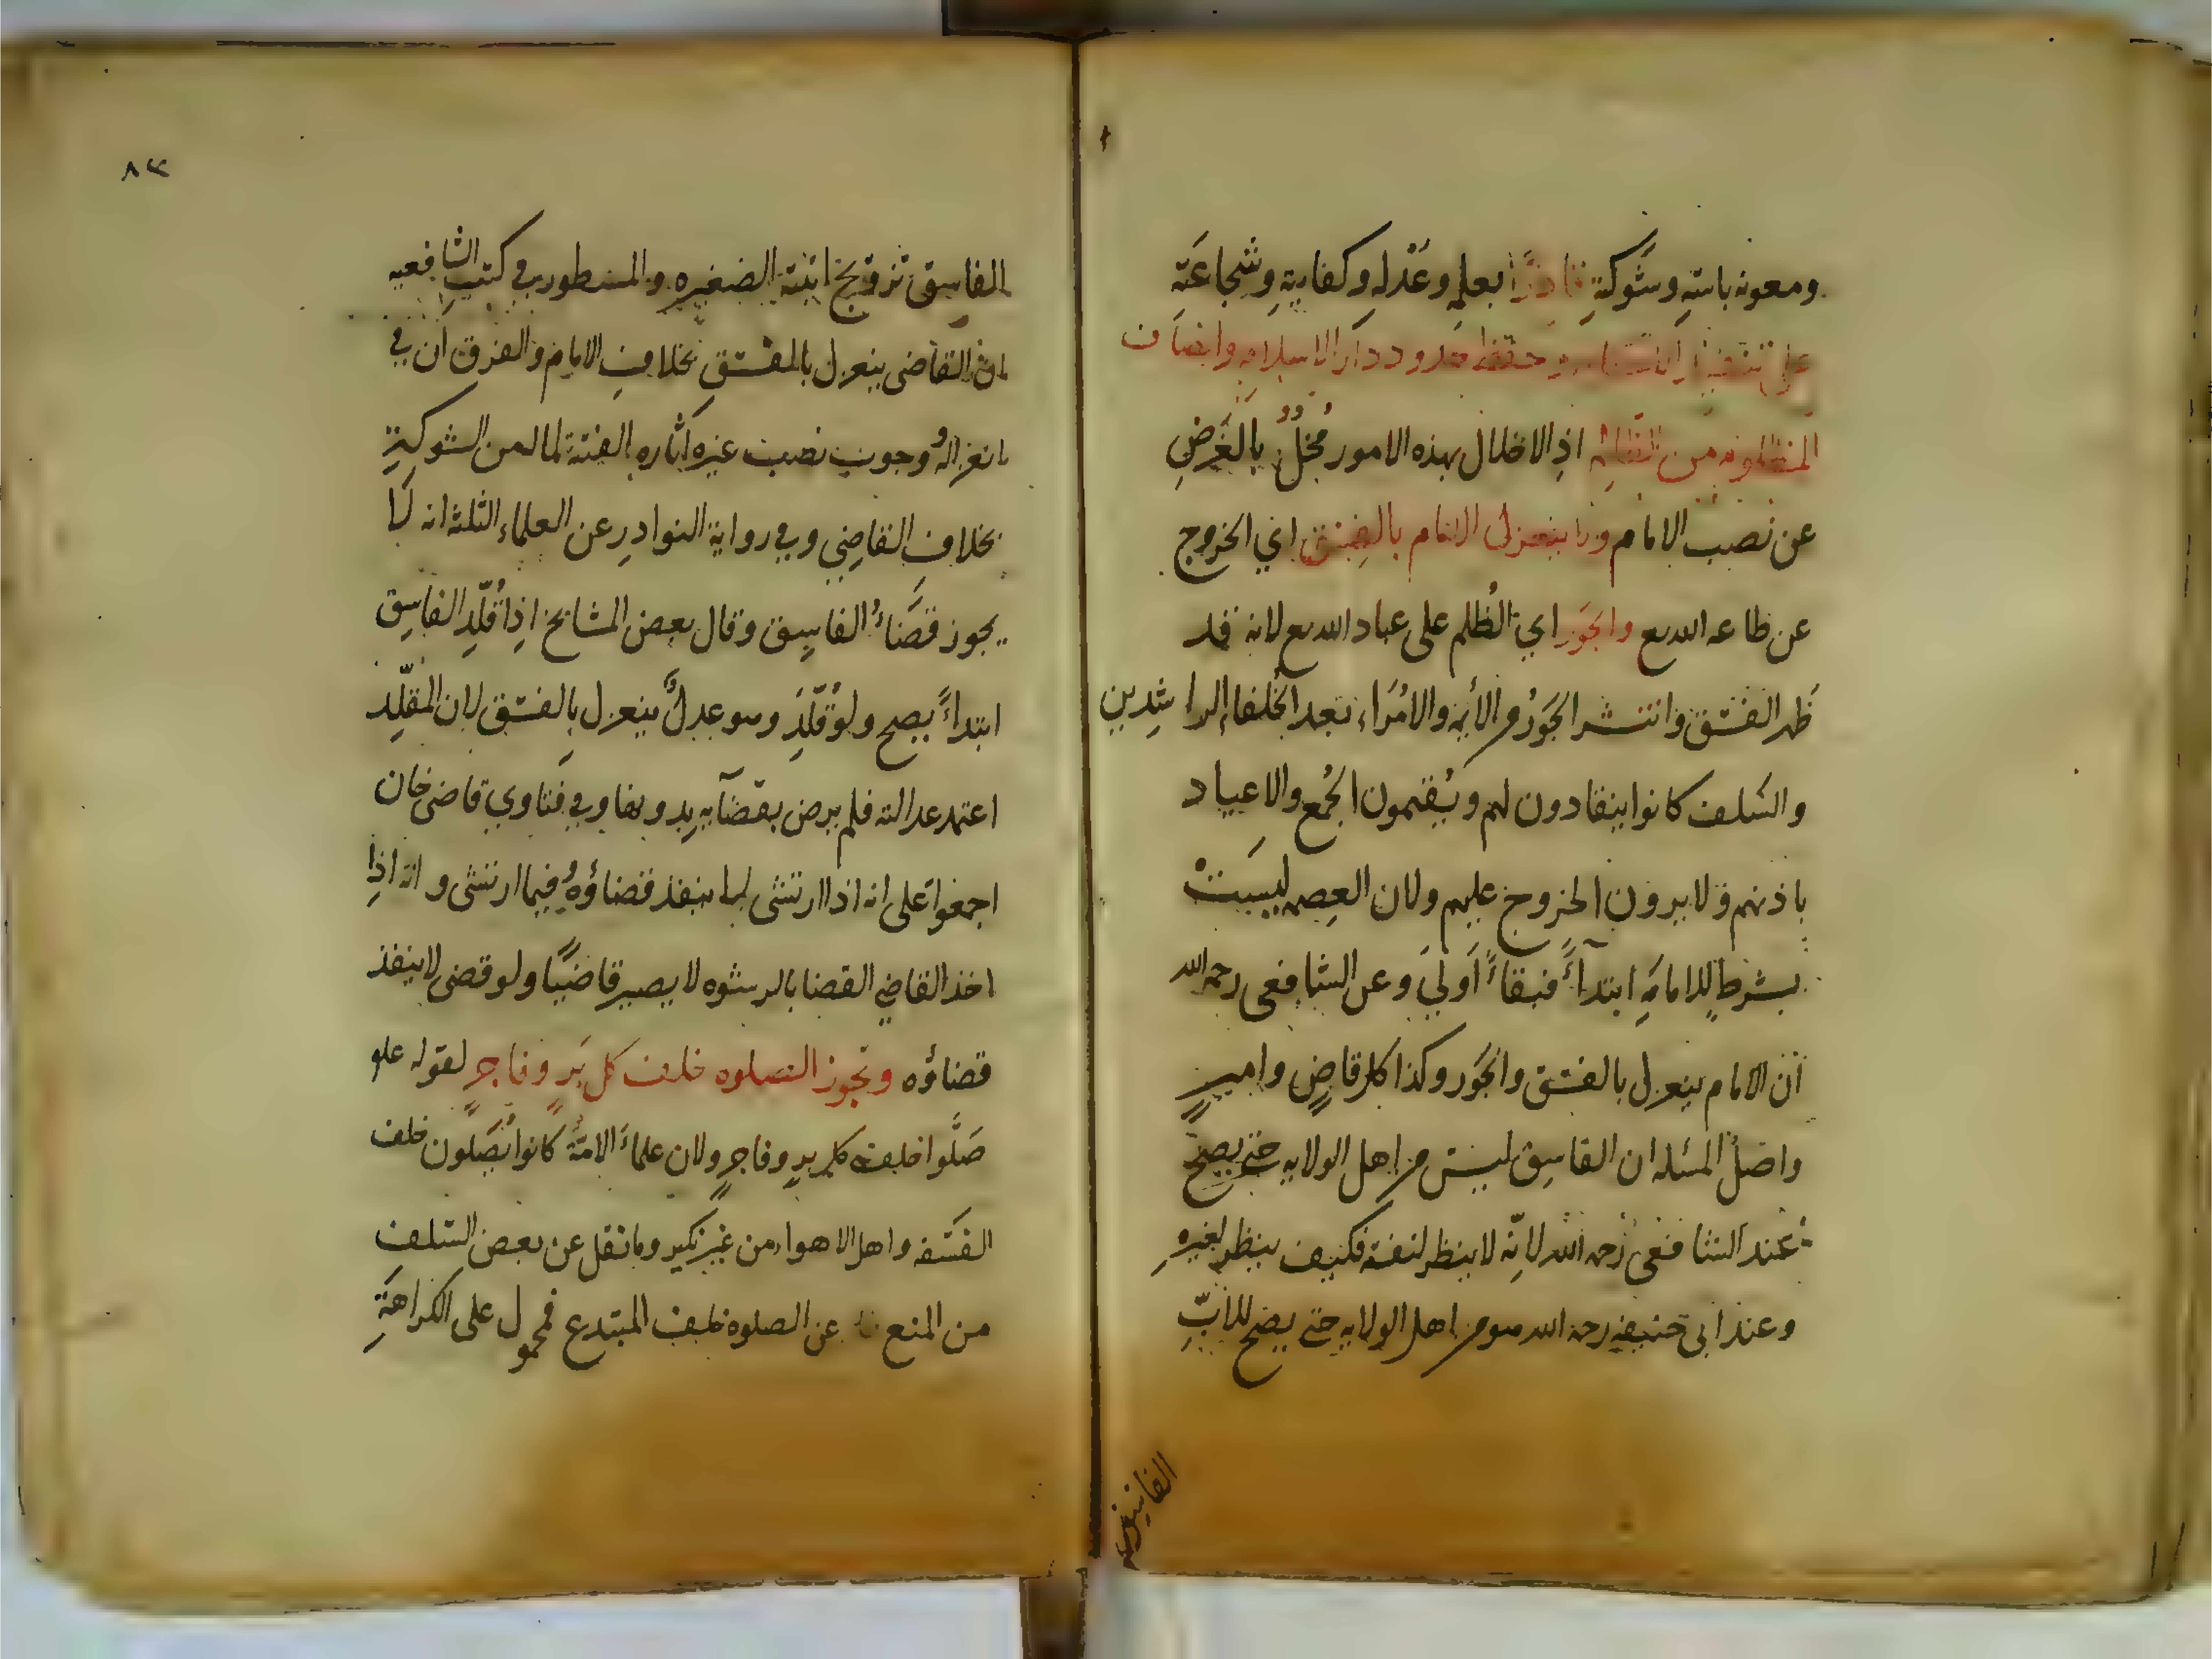 ومعونة باسه وشوكته قادرا بعلمه وعدله وكفايته وشجاعته
على تنفيذ الاحكام وحفظ حدود دار الاسلام وانصاف
المظلوم من الظالم اذ الاخلال بهذه الامور مخل بالغرض
عن نصب الامام ولا ينعزل الامام بالفسق اي الخروج
عن طاعه الله تع والجور اي الظلم على عباد الله تع لانه قد
ظهر الفسق وانتشر الجور من الأيمه والامراء بعد الخلفاء الراشدين
والسلف كانوا ينقادون لهم ويقيمون الجمع والاعياد
باذنهم ولا يرون الخروج عليهم ولان العصمه ليست
بشرط للامامة ابتداءً فبقاءً اولي وعن الشافعي رحمه الله
ان الامام ينعزل بالفسق والجور وكذا كل قاض وامير
واصل المسئله ان الفاسق ليس من اهل الولايه حتى يصح
عند الشافعي رحمه الله لانه لا ينظر لنفسه فكيف ينظر لغيره
وعند ابى حنيفه رحمه الله هو من اهل الولايه حتى يصح للاب
الفاسق
٨٣
الفاسق تزويج ابنته الصغيره والمسطور في كتب الشافعيه
ان القاضى ينعزل بالفسق بخلاف الامام والفرق ان في
انعزاله ووجوب نصب غيره اثاره الفتنة لما له من الشوكة
بخلاف القاضي وفي رواية النوادر عن العلماء الثلثة انه لا
يجوز قضاء الفاسق وقال بعض المشايخ اذا قلد الفاسق
ابتداءً يصح ولو قلد وهو عدل ينعزل بالفسق لان المقلد
اعتمد عدالته فلم يرض بقضايه بدونها وفي فتاوي قاضى خان
اجمعوا على انه اذا ارتشى لا ينفذ قضاؤه فيما ارتشى وانه اذا
اخذ القاضي القضا بالرشوه لا يصير قاضيا ولو قضى لا ينفذ
قضاؤه وتجوز الصلوه خلف كل بر وفاجر لقوله علو
صلوا خلف كل بر وفاجر ولان علماء الامة كانوا يصلون خلف
الفسقه واهل الاهواء من غير نكير وما نقل عن بعض السلف
من المنع عن الصلوه خلف المبتدع فمحمول على الكراهة